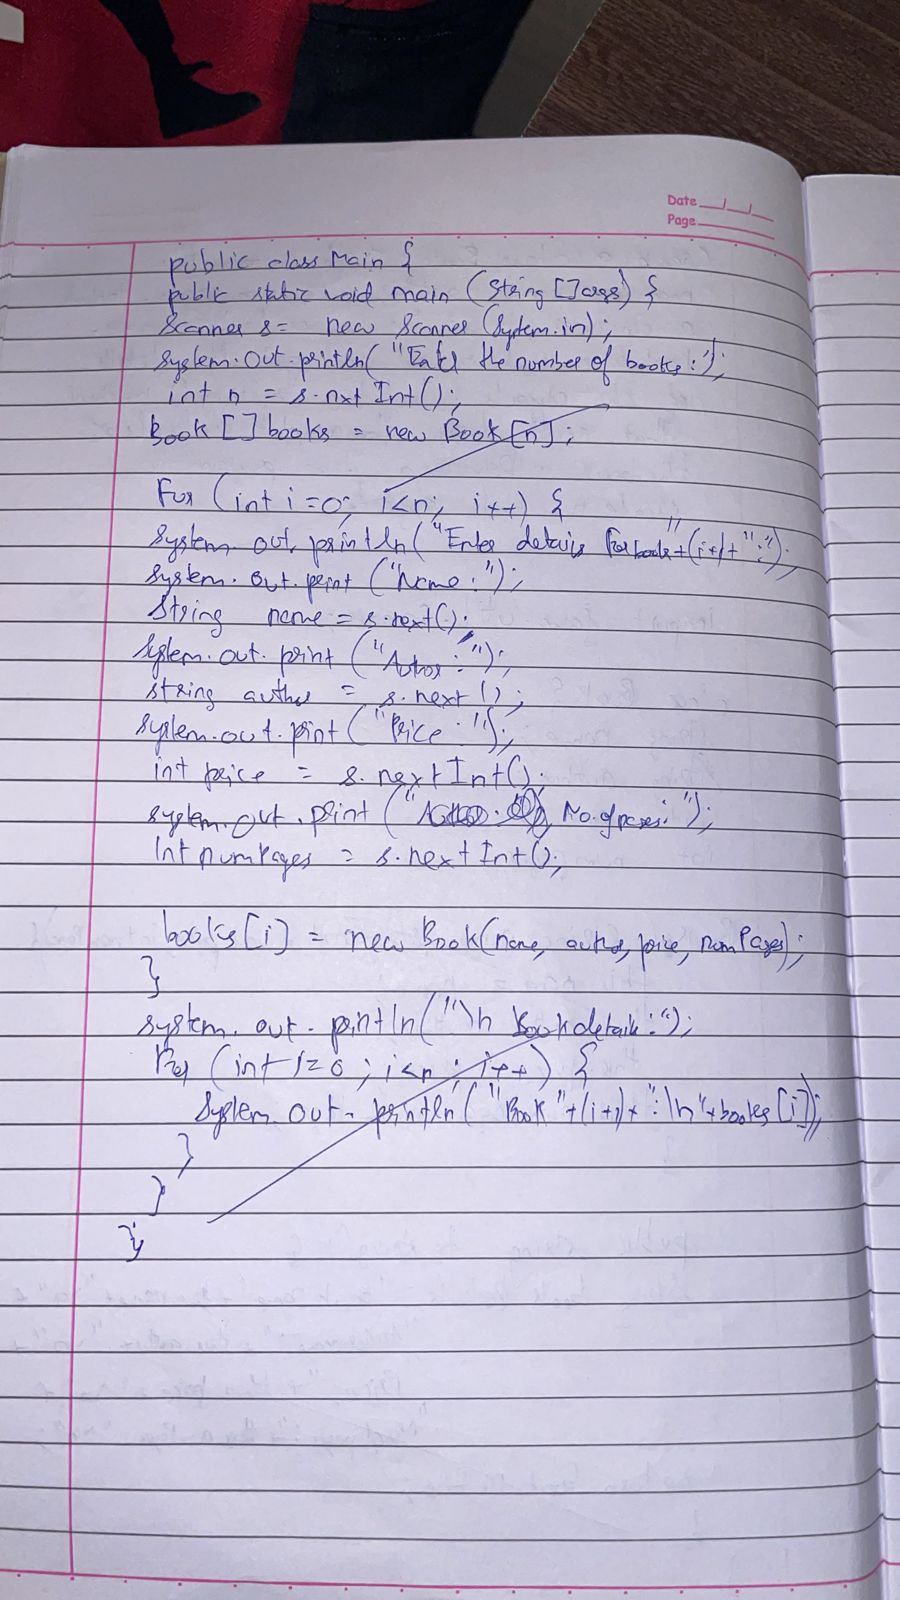 Date
Page
public class Main {
public static void main (String [] args) {
Scanner s = new Scanner (System.in);
System.out.println( "Enter the number of books:");
int n = s.nxt Int();
Book [] books = new Book [n];
For (int i=0; i<n; i++) {
System. out. println ("Enter details for book"+(i+1)+ ":");
System. out. print ("Name:");
String name = s.next();
System.out. print ("Author:");
string author = s.next ();
System.out. print( "Price :");
int price = s. nextInt();
system.out. print (" No. of pages: ");
Int numPages = s.nextInt();
books[i] = new Book(name, author, price, numPages);
}
System. out. println("\n Book details:");
For (int i=0 ; i<n ; i++) {
System. out. println( "Book "+(i+1)+ ":\n"+books [i]);
}
}
}